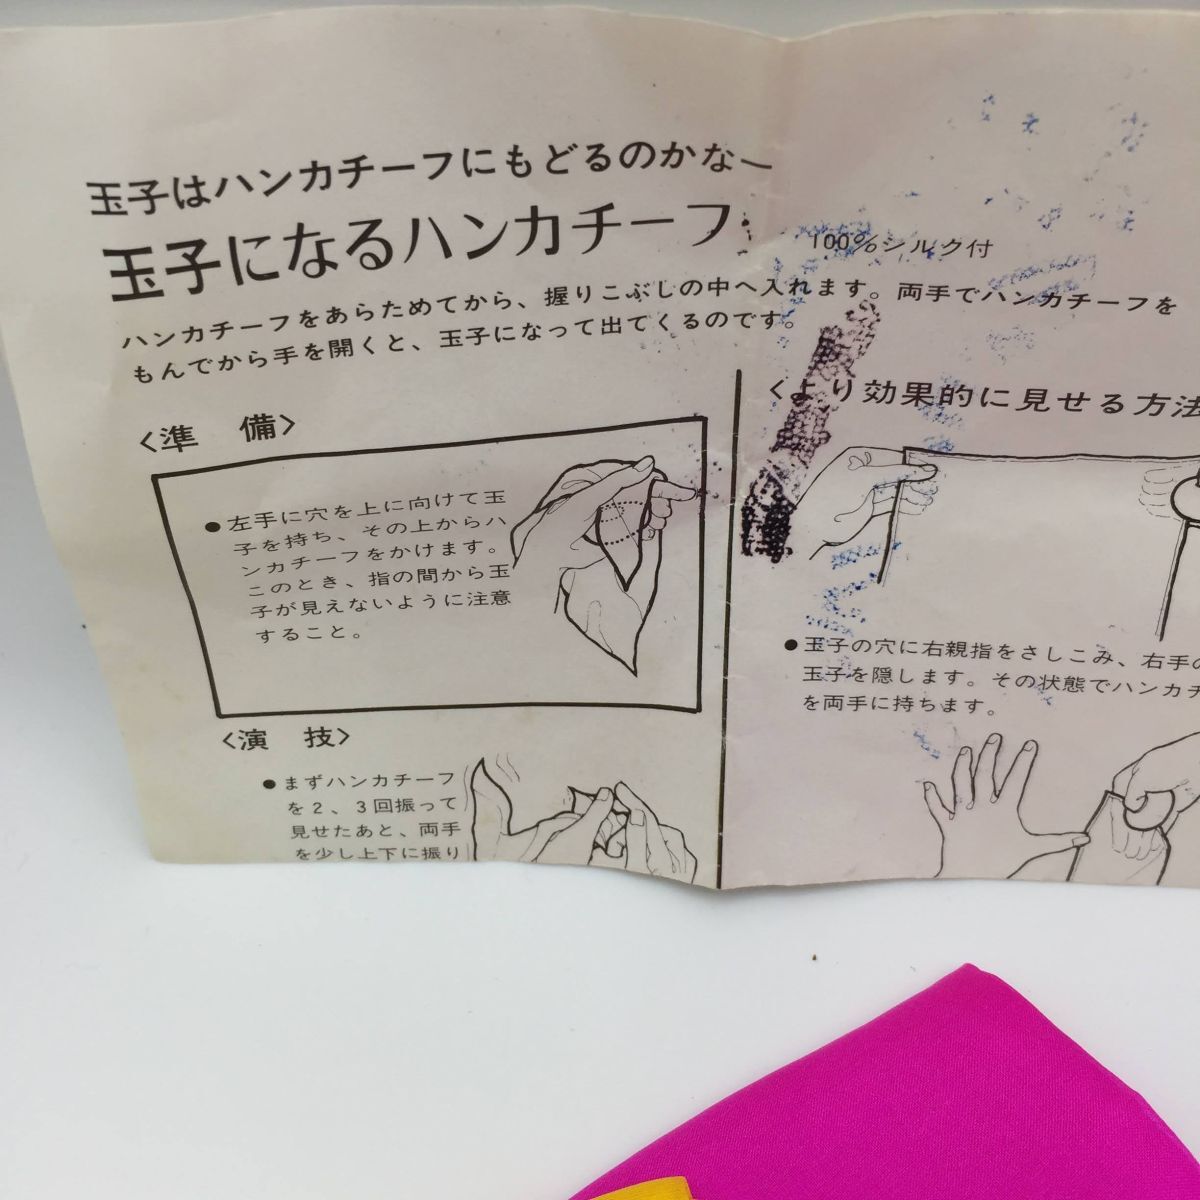 玉子はハンカチーフにもどるのかなー
玉子になるハンカチーフ
100%シルク付
ハンカチーフをあらためてから、握りこぶしの中へ入れます。両手でハンカチーフを
もんでから手を開くと、玉子になって出てくるのです。
〈準　備〉
●左手に穴を上に向けて玉
子を持ち、その上からハ
ンカチーフをかけます。
このとき、指の間から玉
子が見えないように注意
すること。
〈演　技〉
●まずハンカチーフ
を2、3回振って
見せたあと、両手
を少し上下に振り
〈より効果的に見せる方法
●玉子の穴に右親指をさしこみ、右手の
玉子を隠します。その状態でハンカチ
を両手に持ちます。